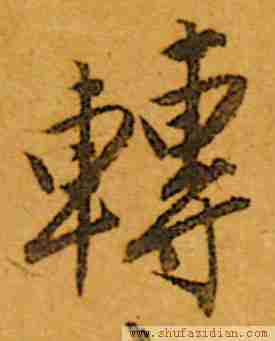 轉
www.shufazidian.com